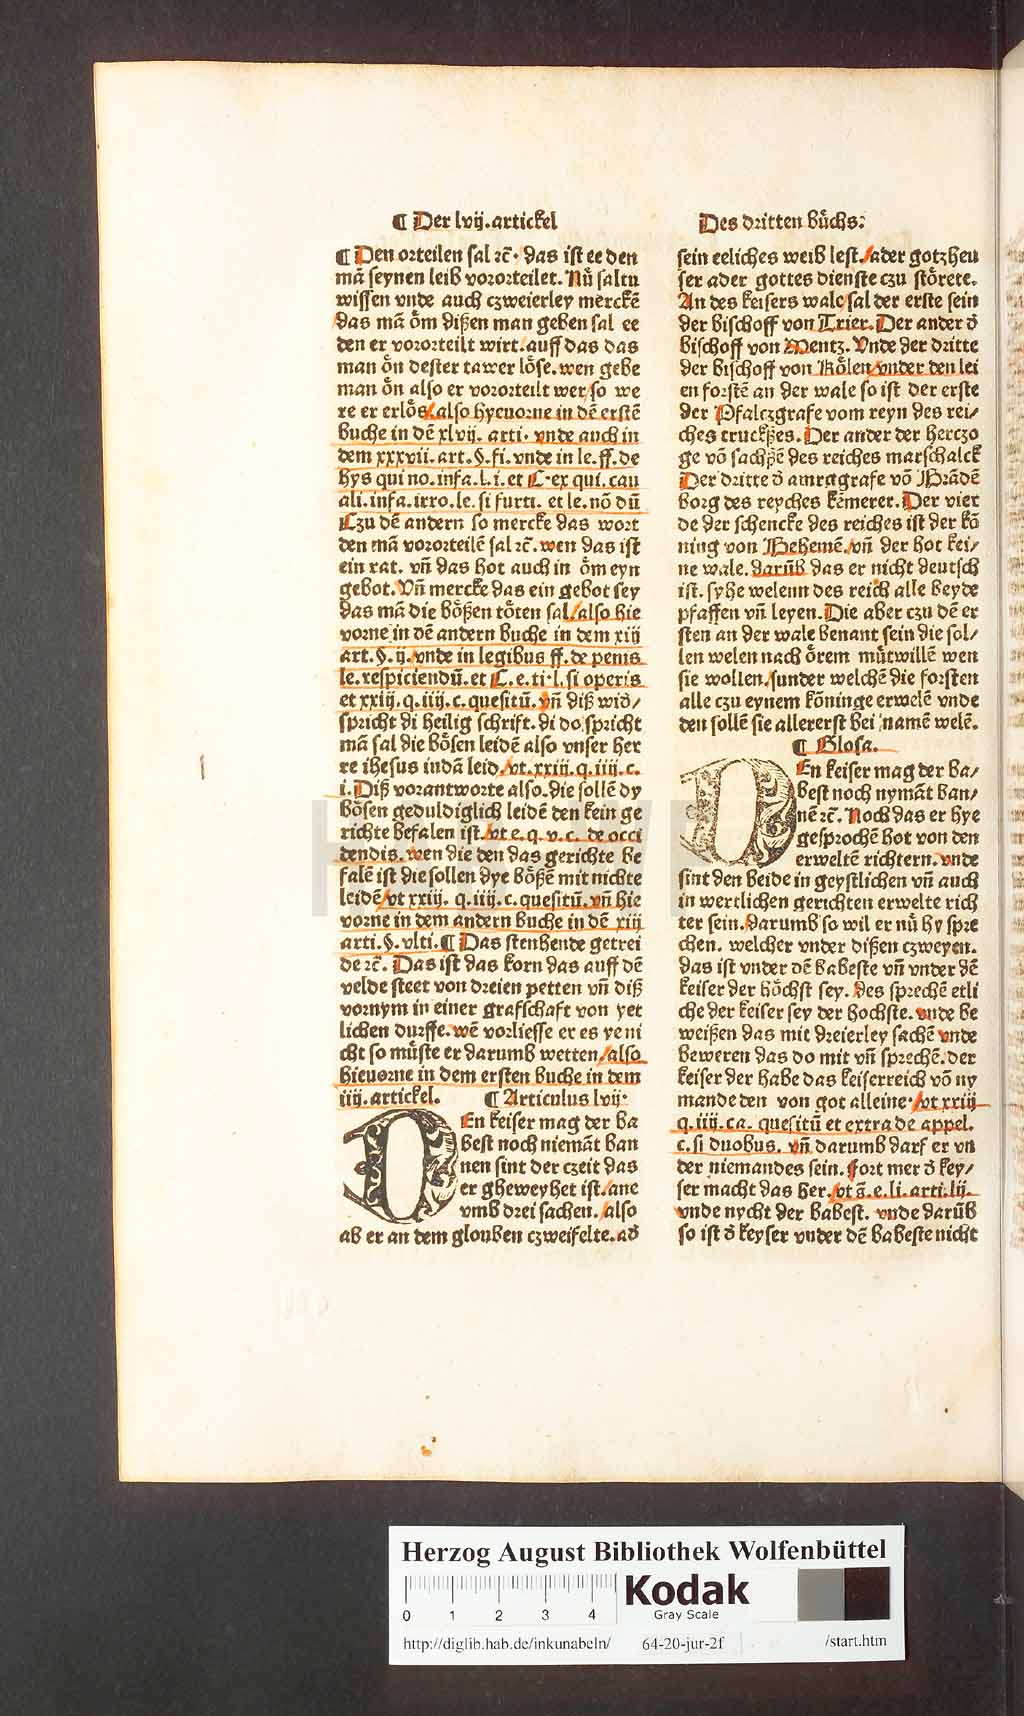 ¶ Der lvij. artickel
Des dritten bůchs:
¶ Den orteilen sal ꝛc̄. das ist ee den
mā seynen leib vorortteilet. Nů saltu
wissen vnde auch czweierley merckē
das mā ȯm dißen man geben sal ee
den er vorortteilt wirt. auff das das
man ȯn dester tawer löse. wen gebe
man ȯn also er vorortteilt wer/so we
re er erlȯs/also hyeuorne in dē erstē
buche in dē xlvij. arti. vnde auch in
dem xxxvii. art. §. fi. vnde in le. ff. de
hys qui no. infa. l. i. et C. ex qui. cau
ali. infa. irro. le. si furti. et le. nō dū
Czu dē andern so mercke das wort
den mā vororteilē sal ꝛc̄. wen das ist
ein rat. vn̄ das hot auch in ȯm eyn
gebot. Vn̄ mercke das ein gebot sey
das mā die bȯßen tȯten sal/also hie
vorne in dē andern buche in dem xiij
art. §. ij. vnde in legibus ff. de penis
le. respiciendū. et C. e. ti. l. si operis
et xxiij. q. iiij. c. quesitū. vn̄ diß wid/
spricht di heilig schrift. di do spricht
mā sal die bȯsen leidē also vnser her
re ihesus indā leid. vt. xxiij. q. iiij. c.
i. Diß vorantworte also. die sollē dy
bȯsen geduldiglich leidē den kein ge
richte befalen ist. vt e. q. v. c. de occi
dendis. wen die den das gerichte be
falē ist die sollen dye bȯßē mit nichte
leidē/vt xxiij. q. iiij. c. quesitū. vn̄ hie
vorne in dem andern buche in dē xiij
arti. §. vlti. ¶ Das stenhende getrei
de ꝛc̄. Das ist das korn das auff dē
velde steet von dreien petten vn̄ diß
vornym in einer grafschaft von yet
lichen durffe. wē vorliesse er es ye ni
cht so můste er darumb wetten/also
hieuorne in dem ersten buche in dem
iiij. artickel. ¶ Articulus lvij.
DEn keiser mag der ba
best noch niemāt ban
nen sint der czeit das
er gheweyhet ist/ane
vmb drei sachen. also
ab er an dem glouben czweifelte. ad̄
sein eeliches weib lest. ader gotzheu
ser ader gottes dienste czu stȯrete.
An des keisers wale sal der erste sein
der bischoff von Trier. Der ander d̄
bischoff von Mentz. Vnde der dritte
der bischoff von Kȯlen/vnder den lei
en forstē an der wale so ist der erste
der Pfalczgrafe vom reyn des rei/
ches truckßes. Der ander der herczo
ge vō sachßē des reiches marschalck
Der dritte d̄ amragrafe vō Brādē
borg des reyches kēmerer. Der vier
de der schencke des reiches ist der kō
ning von Behemē. vn̄ der hot kei/
ne wale. darūb das er nicht deutsch
ist. syhe welenn des reich alle beyde
pfaffen vn̄ leyen. Die aber czu dē er
sten an der wale benant sein die sol/
len welen nach ȯrem můtwillē wen
sie wollen. sunder welchē die forsten
alle czu eynem kōninge erwelē vnde
den sollē sie allererst bei namē welē.
¶ Glosa.
DEn keiser mag der ba/
best noch nymāt ban/
nē ꝛc̄. Noch das er hye
gesprochē hot von den
erweltē richtern. vnde
sint den beide in geystlichen vn̄ auch
in wertlichen gerichten erwelte rich
ter sein. darumb so wil er nů hy spre
chen. welcher vnder dißen czweyen.
das ist vnder dē babeste vn̄ vnter dē
keiser der hȯchst sey. des sprechē etli
che der keiser sey der hochste. vnde be
weißen das mit dreierley sachē vnde
beweren das do mit vn̄ sprechē. der
keiser der habe das keiserreich vō ny
mande den von got alleine. vt xxiij
q. iiij. ca. quesitū et extra de appel.
c. si duobus. vn̄ darumb darf er vn
der niemandes sein. fort mer d̄ key/
ser macht das her. vt s̄. e. li. arti. lij.
vnde nycht der babest. vnde darūb
so ist d̄ keyser vnder dē babeste nicht
HAB WF
Herzog August Bibliothek Wolfenbüttel
Kodak
Gray Scale
0 1 2 3 4
http://diglib.hab.de/inkunabeln/ 64-20-jur-2f /start.htm